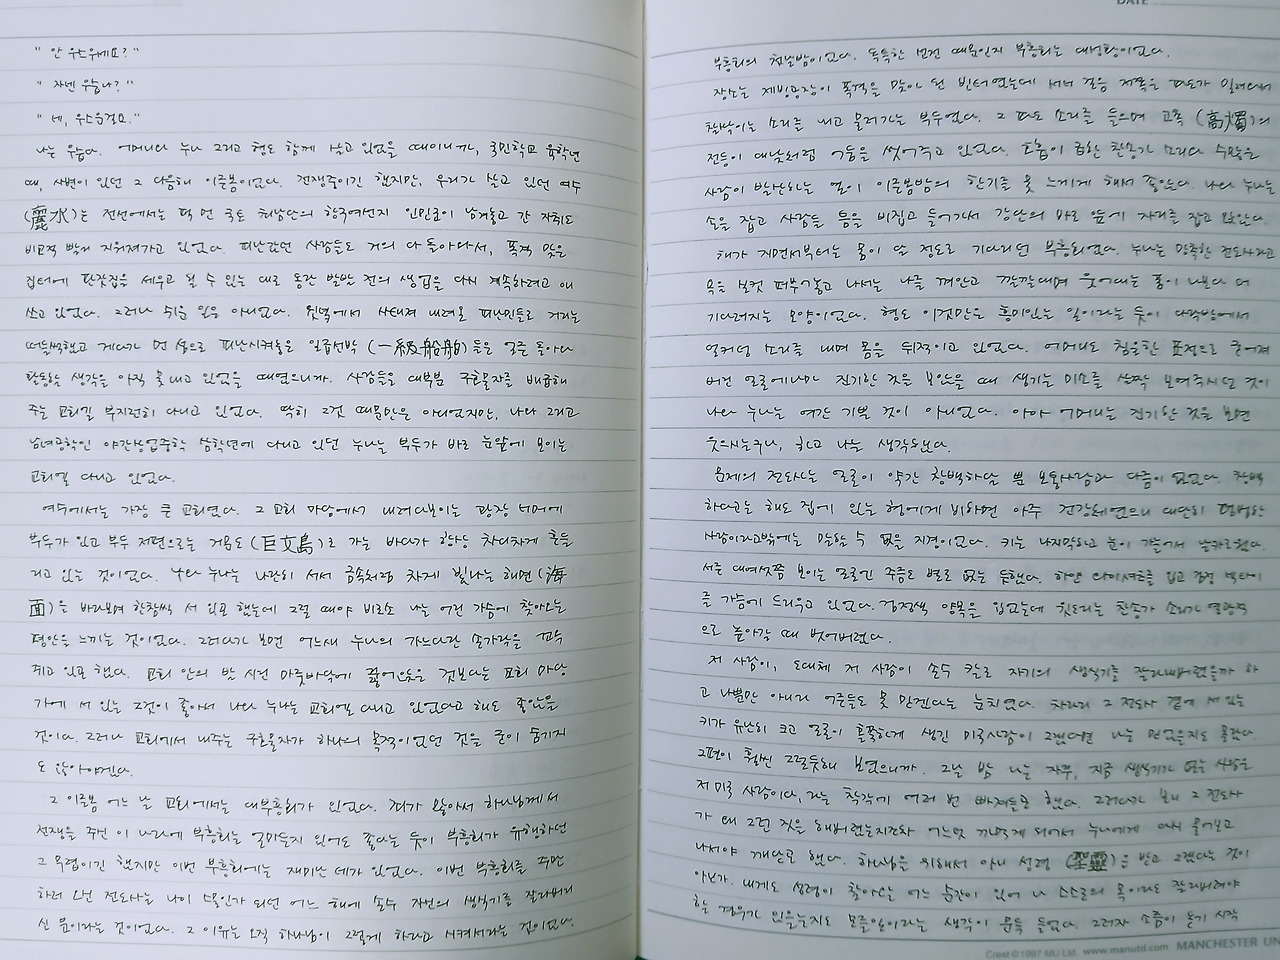 "안 우스우세요?"
"자넨 우습나?"
"네, 우스운걸요."
나는 우습다. 어머니나 누나 그리고 형도 함께 살고 있었을 때이니까, 국민학교 육학년
때, 사변이 있던 그 다음해 이른봄이었다. 전쟁중이긴 했지만, 우리가 살고 있던 여수
(麗水)는 전선에서는 퍽 먼 국토 최남단의 항구여선지 인민군이 남겨놓고 간 자취도
비교적 빨리 지워져가고 있었다. 피난갔던 사람들도 거의 다 돌아와서, 폭격 맞은
집터에 판잣집을 세우고 될 수 있는 대로 동란 발발 전의 생업을 다시 계속하려고 애
쓰고 있었다. 그러나 쉬운 일은 아니었다. 윗녘에서 사태져 내려온 피난민들로 거리는
떠들썩했고 게다가 먼 섬으로 피난시켜놓은 일급선박 (一級船舶)들은 얼른 돌아나
활동할 생각을 아직 못 내고 있었을 때였으니까. 사람들은 대부분 구호물자를 배급해
주는 교회엘 부지런히 다니고 있었다. 딱히 그것 때문만은 아니었지만, 나와 그리고
남녀공학인 야간상업중학 삼학년에 다니고 있던 누나는 부두가 바로 눈앞에 보이는
교회엘 다니고 있었다.
여수에서는 가장 큰 교회였다. 그 교회 마당에서 내려다보이는 광장 너머에
부두가 있고 부두 저편으로는 거문도(巨文島)로 가는 바다가 항상 차디차게 흔들
리고 있는 것이었다. 나와 누나는 나란히 서서 금속처럼 차게 빛나는 해면 (海
面)을 바라보며 한참씩 서 있곤 했는데 그럴 때야 비로소 나는 어떤 가슴에 찾아오는
평안을 느끼는 것이었다. 그러다가 보면 어느새 누나의 가느다란 손가락을 꼬옥
쥐고 있곤 했다. 교회 안의 밤 시간 마룻바닥에 꿇어앉은 것보다는 교회 마당
가에 서 있는 그것이 좋아서 나와 누나는 교회에 다니고 있었다고 해도 좋았을
것이다. 그러나 교회에서 내주는 구호물자가 하나의 목적이었던 것을 굳이 숨기지
도 않아야겠다.
그 이른봄 어느 날 교회에서는 대부흥회가 있었다. 죄가 많아서 하나님께서
전쟁을 주신 이 나라에 부흥회는 얼마든지 있어도 좋다는 듯이 부흥회가 유행하던
그 무렵이긴 했지만 이번 부흥회에는 재미난 데가 있었다. 이번 부흥회를 주관
하러 오신 전도사는 나이 스물인가 되던 어느 해에 손수 자신의 생식기를 잘라버리
신 분이라는 것이었다. 그 이유는 오직 하나님이 그렇게 하라고 시켜서라는 것이었다.
부흥회의 첫날밤이었다. 독특한 선전 때문인지 부흥회는 대성황이었다.
장소는 제빙공장이 폭격을 맞아 된 빈터였는데 서너 걸음 저쪽은 파도가 밀려와서
찰싹이는 소리를 내고 물러가는 부두였다. 그 파도 소리를 들으며 고촉 (高燭)의
전등이 대낮처럼 어둠을 씻어주고 있었다. 호흡이 급한 찬송가 소리와 수많은
사람이 발산하는 열이 이른봄밤의 한기를 못 느끼게 해서 좋았다. 나와 누나는
손을 잡고 사람들 틈을 비집고 들어가서 강단의 바로 앞에 자리를 잡고 앉았다.
해가 지면서부터는 몸이 달 정도로 기다리던 부흥회였다. 누나는 망측한 전도사라고
욕을 실컷 퍼부어놓고 나서는 나를 껴안고 깔깔대며 웃어대는 품이 나보다 더
기다려지는 모양이었다. 형도 이것만은 흥미있는 일이라는 듯이 다락방에서
덜커덩 소리를 내며 몸을 뒤적이고 있었다. 어머니도 침울한 표정으로 굳어져
버린 얼굴에나마 진기한 것을 보았을 때 생기는 미소를 살짝 보여주시던 것이
나와 누나는 여간 기쁠 것이 아니었다. 아아 어머니는 진기한 것을 보면
웃으시는구나, 하고 나는 생각되었다.
문제의 전도사는 얼굴이 약간 창백하달 뿐 보통사람과 다름이 없었다. 창백
하다고는 해도 집에 있는 형에게 비하면 아주 건강체였으니 대단히 평범한
사람이라고밖에는 말할 수 없을 지경이었다. 키는 나지막하고 눈이 가늘어서 날카로웠다.
서른 대여섯쯤 보이는 얼굴엔 주름도 별로 없는 듯했다. 하얀 와이셔츠를 입고 검정 넥타이
를 가슴에 드리우고 있었다. 검정색 양복을 입었는데 짓누르는 찬송가 소리가 열광적
으로 높아갈 때 벗어버렸다.
저 사람이, 도대체 저 사람이 손수 칼로 자기의 생식기를 잘라내버렸을까 하
고 나뿐만 아니라 어른들도 못 믿겠다는 눈치였다. 차라리 그 전도사 곁에 서 있는
키가 유난히 크고 얼굴이 홀쭉하게 생긴 미국사람이 그랬다면 나는 믿었을지도 몰랐다.
그편이 훨씬 그럴듯해 보였으니까. 그날 밤 나는 자주, 지금 생식기가 없는 사람은
저 미국 사람이다,라는 착각에 여러 번 빠져들곤 했다. 그러다가 보니 그 전도사
가 왜 그런 짓을 해버렸는지조차 어느덧 까맣게 되어서 누나에게 다시 물어보고
나서야 깨닫곤 했다. 하나님을 위해서 아니 성령 (聖靈)을 받고 그랬다는 것이
아닌가. 내게도 성령이 찾아오는 어느 순간이 있어 나 스스로의 목이라도 잘라버려야
할 경우가 있을는지도 모를 일이라는 생각이 문득 들었다. 그러자 소름이 돋기 시작
DATE
Crest © 1997 MU Ltd. www.manutd.com MANCHESTER UN